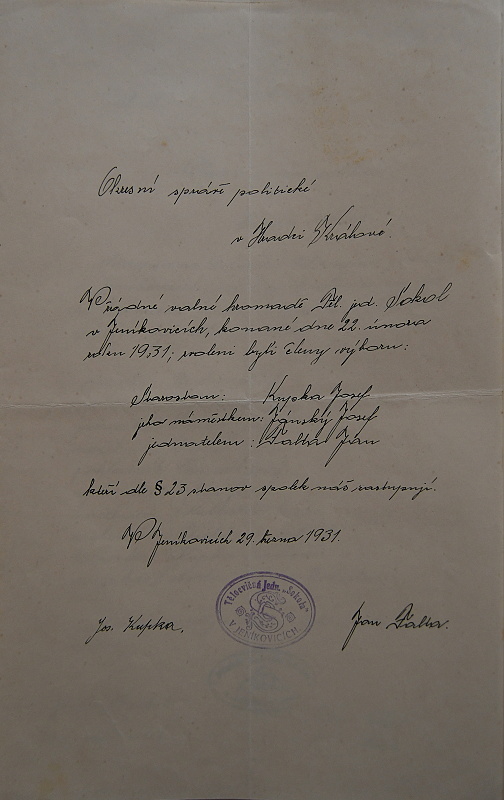 Okresní správě politické
v Hradci Králové.
V řádné valné hromadě Těl. jed. Sokol
v Jeníkovicích, konané dne 22. února
roku 1931; zvoleni byli členy výboru:
Starostou: Kupka Josef
jeho náměstkem: Jánský Josef
jednatelem: Falta Jan
kteří dle § 23 stanov spolek náš zastupují.
V Jeníkovicích 29. března 1931.
Tělocvičná jedn. „Sokol"
V JENÍKOVICÍCH
Jos. Kupka,
Jan Falta.